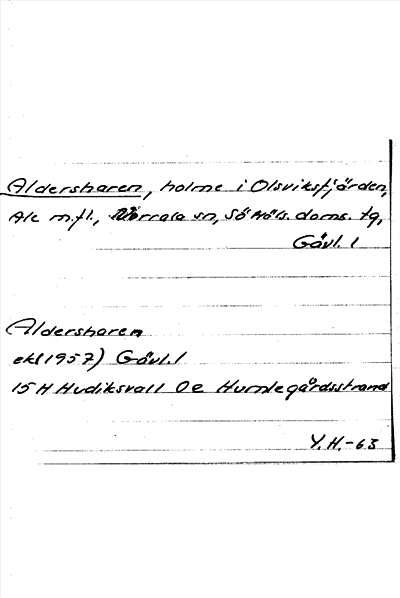 Aldersharen, holme i Olsviksfjärden,
Ale m.fl., Norrala sn, Sö Häls. doms. tg,
Gävl. l
Aldersharen
ek(1957) Gävl. l
15 H Hudiksvall 0e Humlegårdsstrand
Y.H.-63